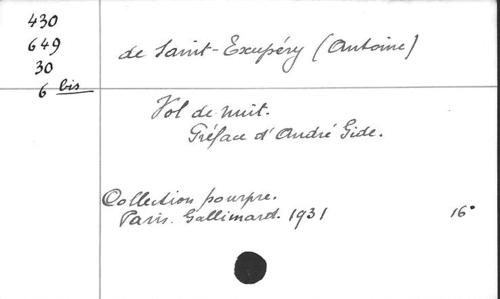 430
649
30
6 bis
de Saint-Exupéry (Antoine)
Vol de nuit.
Préface d'André Gide.
Collection pourpre.
Paris. Gallimard. 1931
16°